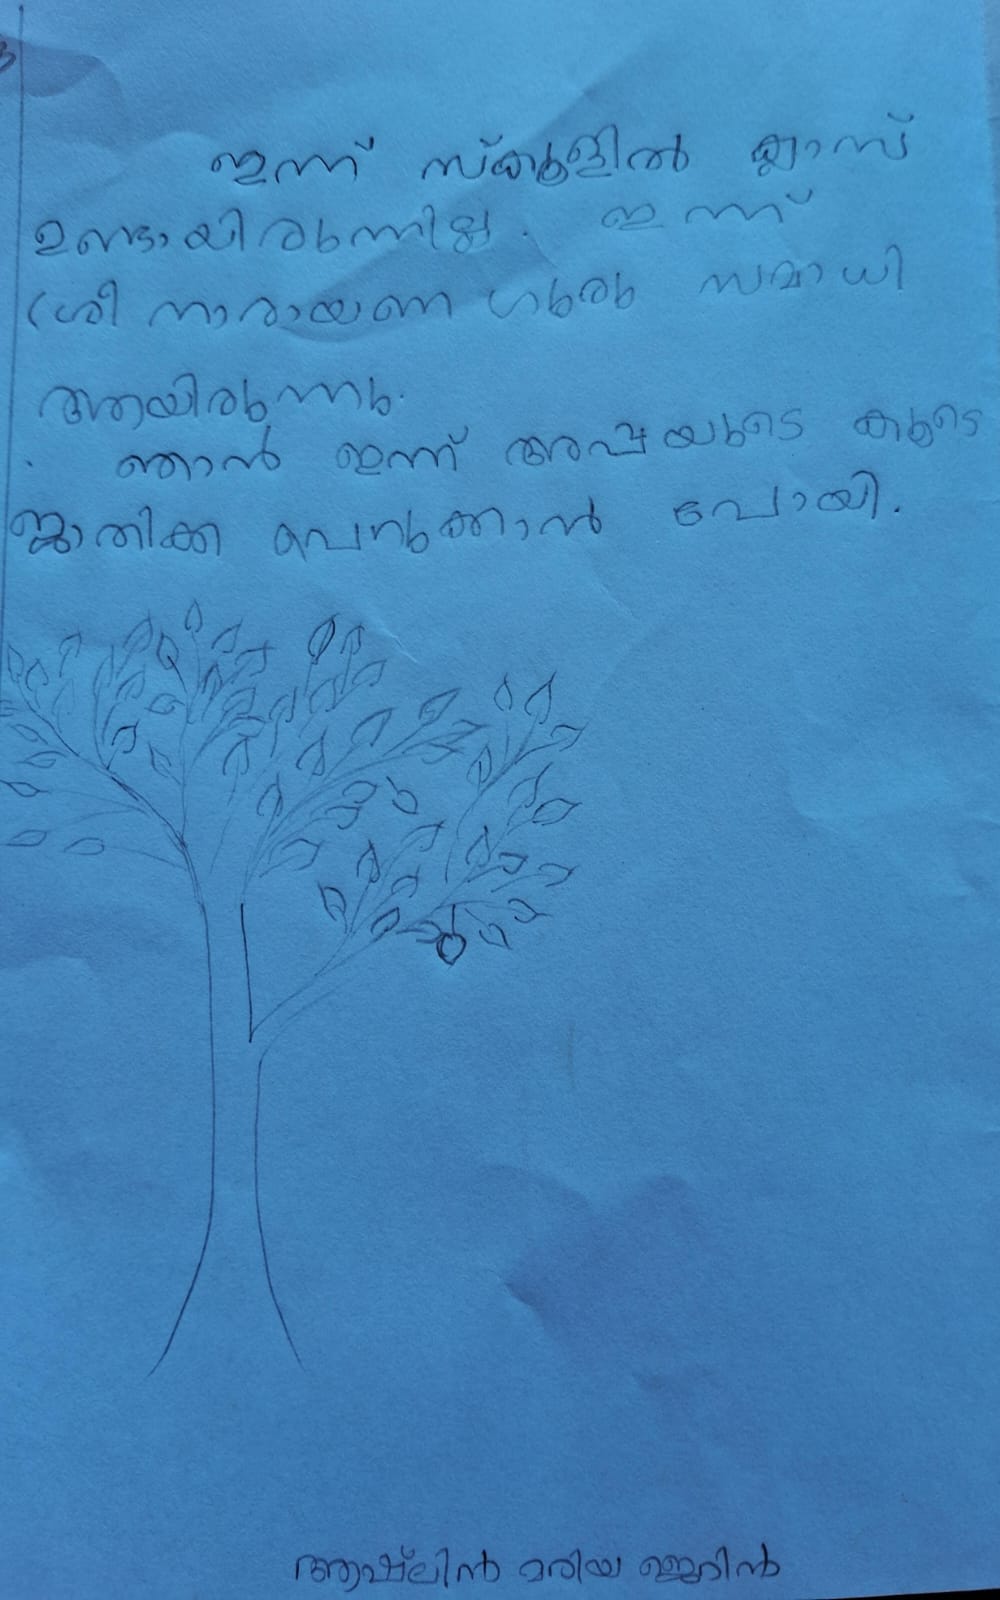 ഇന്ന് സ്ക്കൂളിൽ ക്ലാസ്
ഉണ്ടായിരുന്നില്ല. ഇന്ന്
ശ്രീ നാരായണ ഗുരു സമാധി
ആയിരുന്നു.
ഞാൻ ഇന്ന് അപ്പയുടെ കൂടെ
ജാതിക്ക പെറുക്കാൻ പോയി.
ആഷ്ലിൻ മരിയ ജെറിൻ